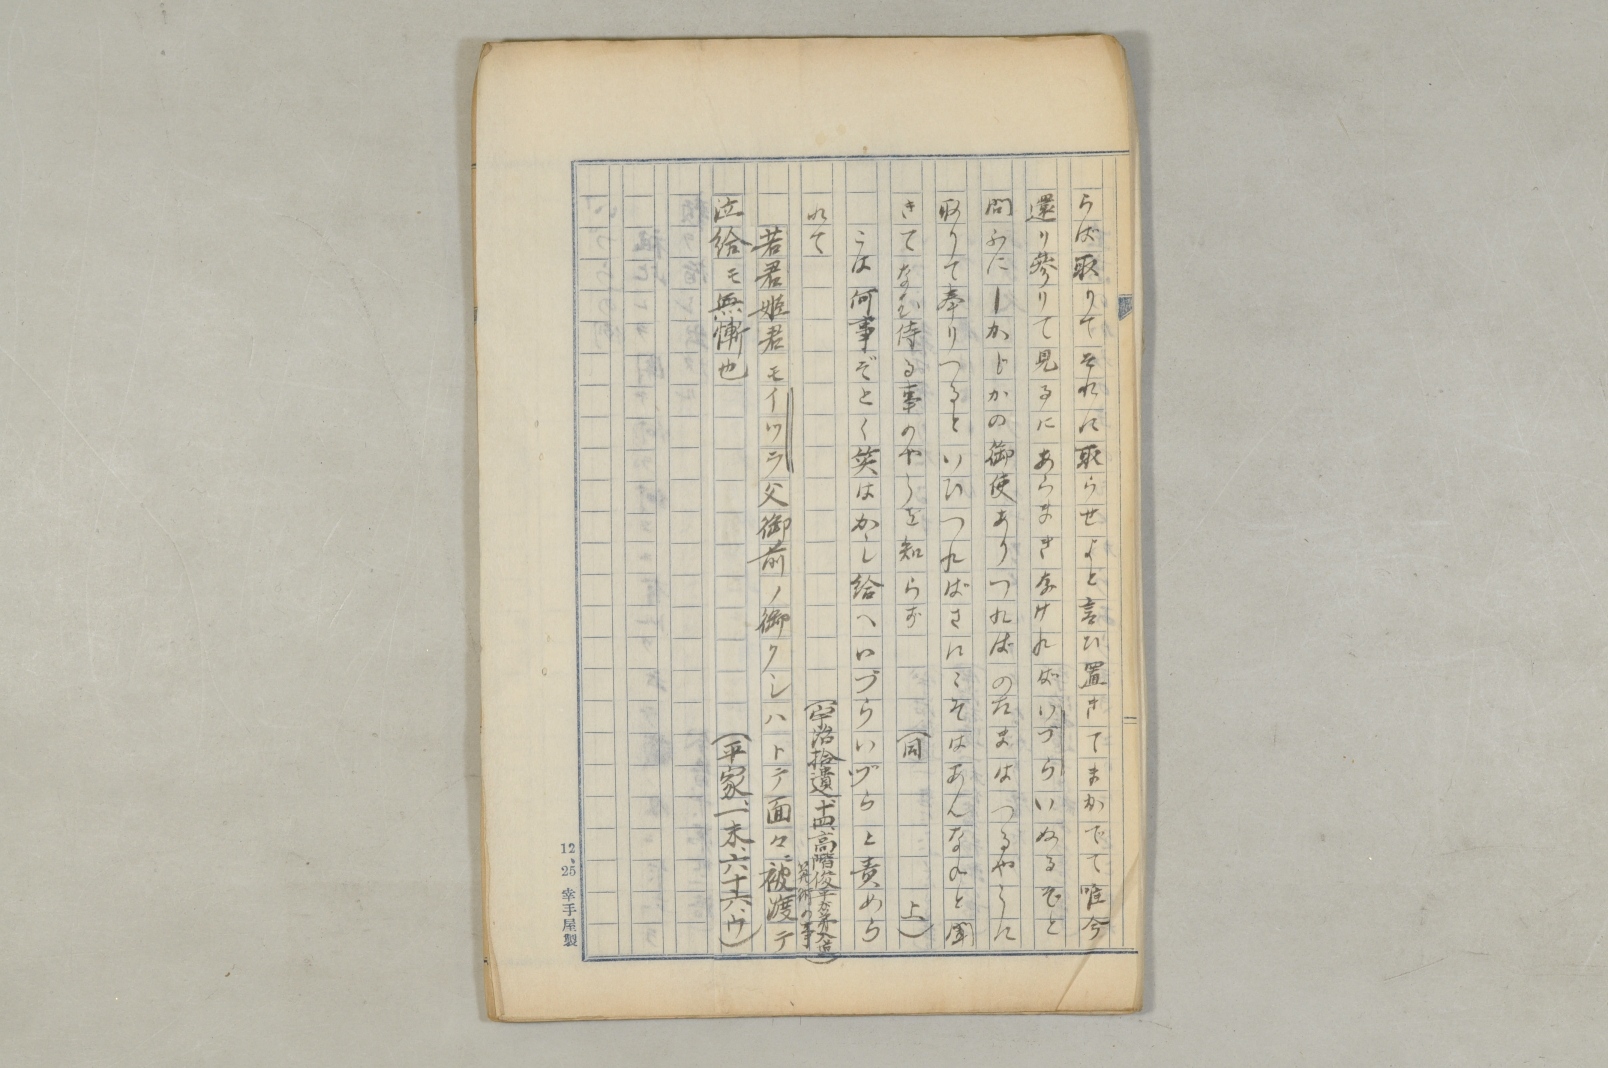 らば取りてそれに取らせよと言ひ置きてまかでて唯今
還り參りて見るにあらまさなければいづらいぬるぞと
問ふにしかじかの御使ありつればのたまはつるやうに
取りて奉りつるといひつればさにこそはあんなめと聞
きてなむ侍る事のやうを知らず（同　上）
こは何事ぞとく笑はかし給へいづらいづらと責めら
れて（宇治拾遺、十四、高階俊平が弟入道算術の事）
若君姫君モイツラ父御前ノ御クシハトテ面々ニ被渡テ
泣給モ無慚也（平家、一末、六十六、ウ）
12、25　幸手屋製